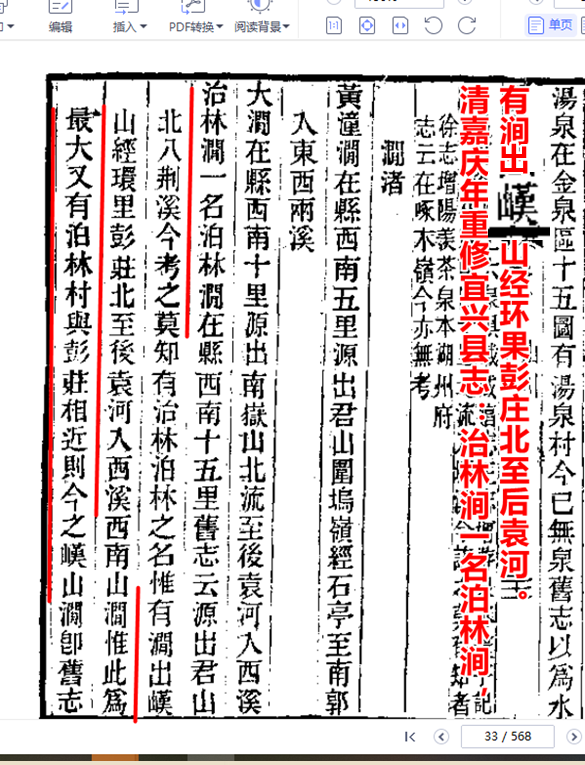 编辑
插入
PDF转换
阅读背景
单页
湯泉在金泉區十五圖有湯泉村今已無泉舊志以爲水
有涧出嘆山经环果彭庄北至后袁河。
清嘉庆年重修宜兴县志：治林涧一名泊林涧，
徐志增陽羨茶泉本湖州府
志云在啄木嶺今亦無考
澗渚
黃潼澗在縣西南五里源出君山圍塢嶺經石亭至南郭
入東西兩溪
大澗在縣西南十里源出南嶽山北流至後袁河入西溪
治林澗一名泊林澗在縣西南十五里舊志云源出君山
北入荆溪今考之莫知有治林泊林之名惟有澗出嘆
山經環里彭莊北至後袁河入西溪西南山澗惟此爲
最大又有泊林村與彭莊相近則今之嘆山澗卽舊志
33 / 568